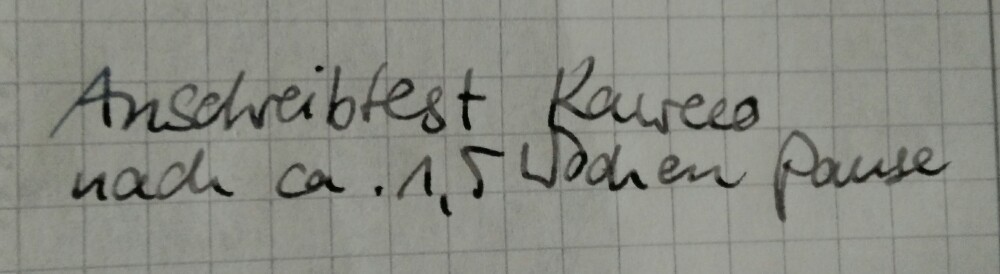 Anschreibtest Kaweco
nach ca. 1,5 Wochen Pause